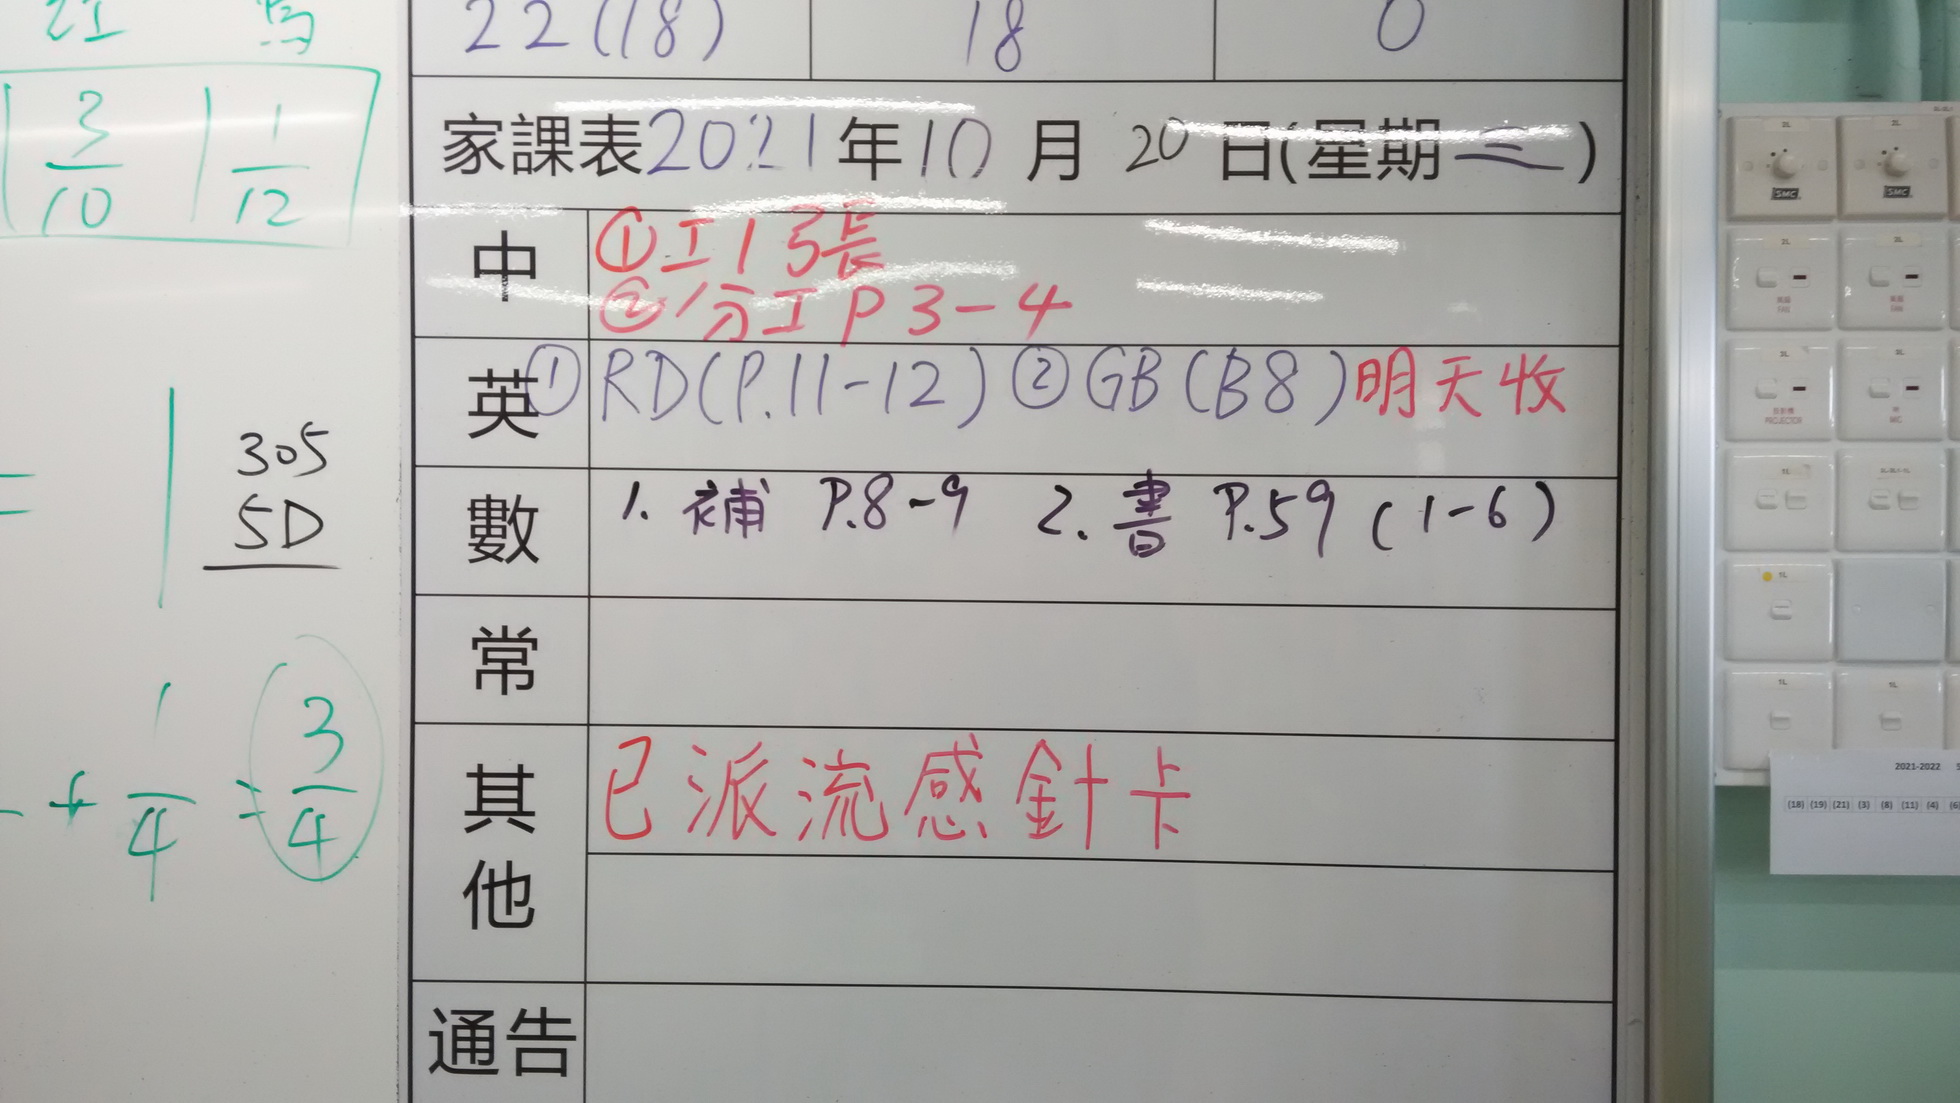 22(18) 18 0
家課表2021年10月20日(星期三)
中
①工1 張
②分工P3-4
英 ①RD(P.11-12) ②GB(B8)明天收
數 1. 補 P.8-9 2. 書 P.59 (1-6)
常
其他 已派流感針卡
通告
3/10 1/12
=
305
5D
+ 1/4 = 3/4
SMC SMC
2L 2L
風扇
FAN
投影機
PROJECTOR
MIC
2021-2022
(18) (19) (21) (3) (8) (11) (4) (6)